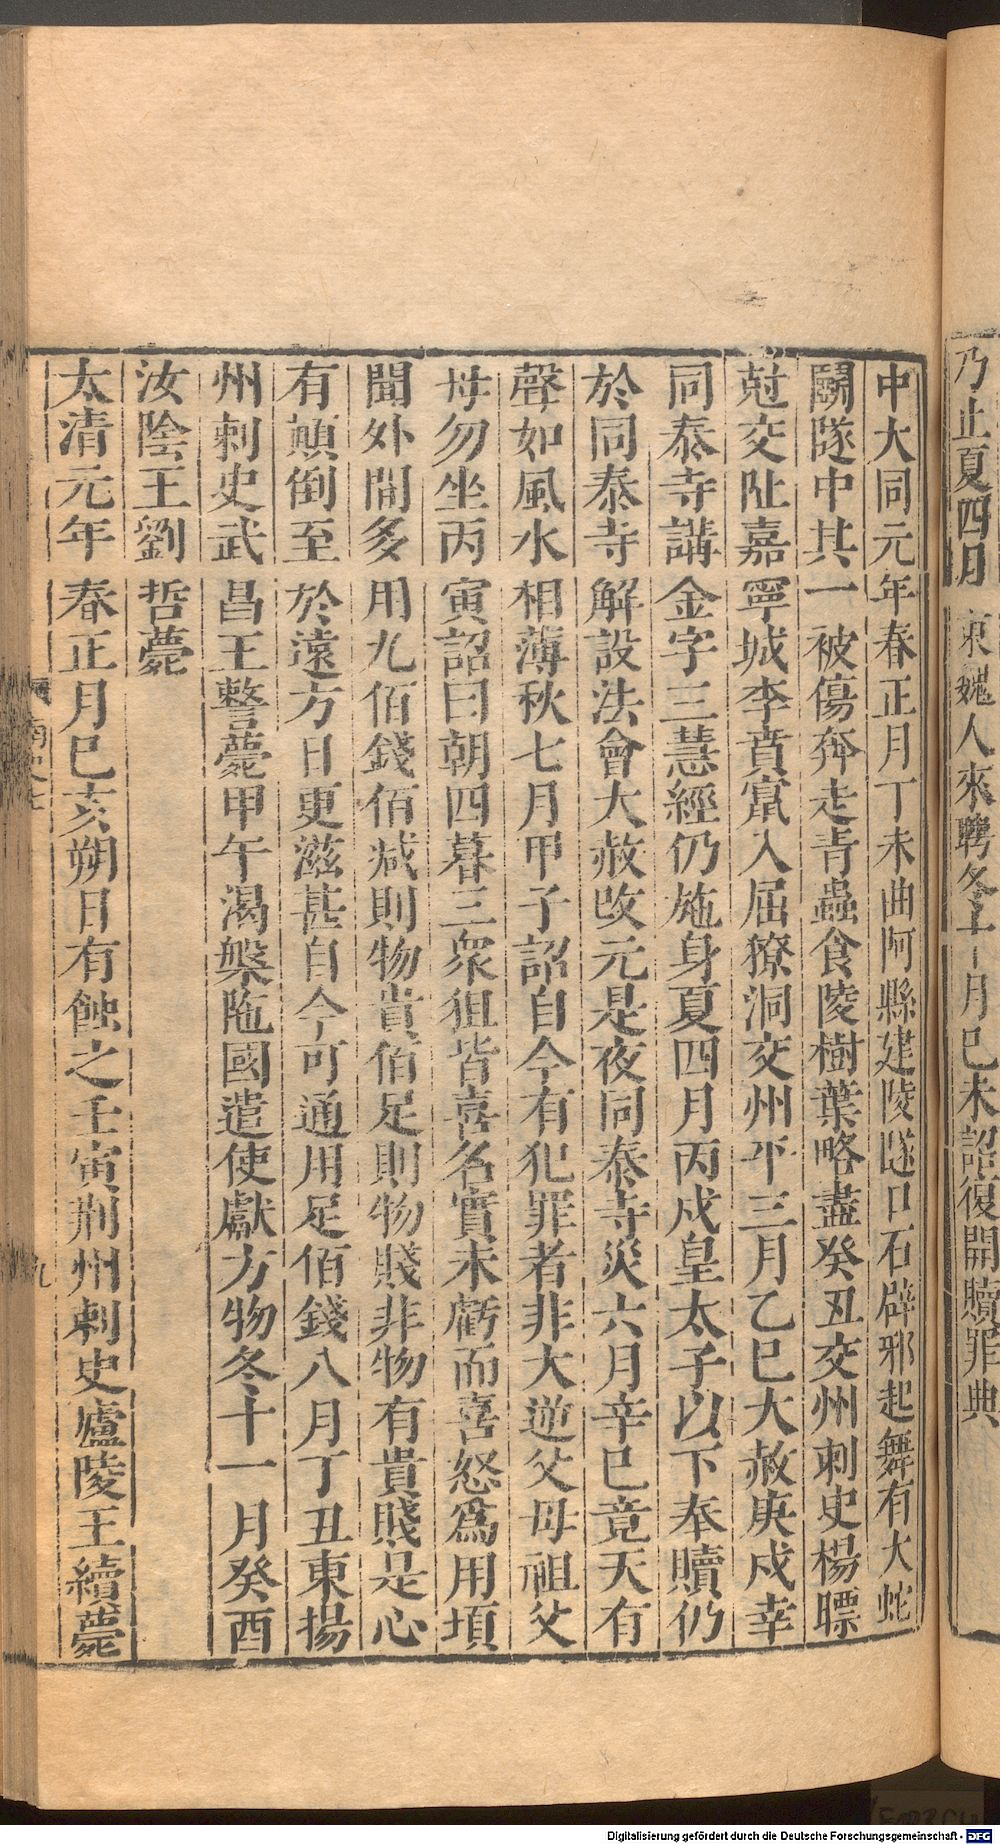 乃止夏四月東魏人來聘冬十一月已未詔復開贖罪典
中大同元年春正月丁未曲阿縣建陵隧口石辟邪起舞有大蛇
鬭隧中其一被傷奔走青蟲食陵樹葉略盡癸丑交州刺史楊㬓
尅交阯嘉寧城李賁竄入屈獠洞交州平三月乙巳大赦庚戌幸
同泰寺講金字三慧經仍施身夏四月丙戌皇太子以下奉贖仍
於同泰寺解設法會大赦改元是夜同泰寺災六月辛巳竟天有
聲如風水相薄秋七月甲子詔自今有犯罪者非大逆父母祖父
母勿坐丙寅詔曰朝四暮三衆狙皆喜名實未虧而喜怒爲用頃
聞外間多用九佰錢佰減則物貴佰足則物賤非物有貴賤是心
有顛倒至於遠方日更滋甚自今可通用足佰錢八月丁丑東揚
州刺史武昌王詧薨甲午渴槃陁國遣使獻方物冬十一月癸酉
汝陰王劉哲薨
太清元年春正月已亥朔日有蝕之壬寅荆州刺史廬陵王續薨
九
Digitalisierung gefördert durch die Deutsche Forschungsgemeinschaft - DFG